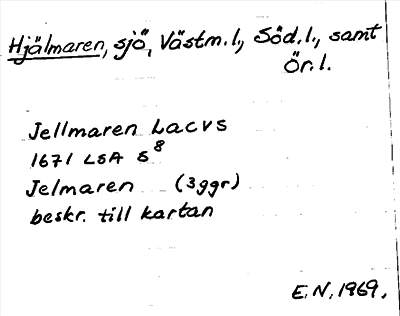 Hjälmaren, sjö, Västm. l., Söd. l., samt
Ör. l.
Jellmaren Lacvs
1671 LSA S⁸
Jelmaren (3ggr)
beskr. till kartan
E. N. 1969.